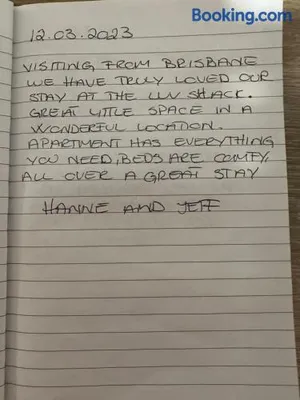 Booking.com
12.03.2023
VISITING FROM BRISBANE
WE HAVE TRULY LOVED OUR
STAY AT THE LUV SHACK.
GREAT LITTLE SPACE IN A
WONDERFUL LOCATION.
APARTMENT HAS EVERYTHING
YOU NEED, BEDS ARE COMFY,
ALL OVER A GREAT STAY
HANNE AND JEFF